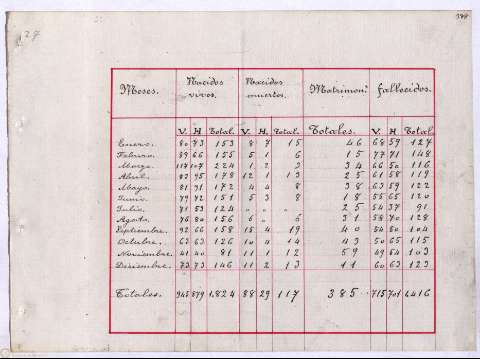 27
Meses. Nacidos vivos. Nacidos muertos. Matrimon.s fallecidos.
V. H. Total. V. H. Total. Totales. V. H. Total.
Enero. 80 73 153 8 7 15 46 68 59 127
Febrero. 89 66 155 5 1 6 15 77 71 148
Marzo. 117 107 224 1 2 3 34 66 50 116
Abril. 83 95 178 12 1 13 25 61 58 119
Mayo. 81 91 172 4 4 8 38 63 59 122
Junio. 79 72 151 5 3 8 18 55 65 120
Julio. 71 53 124 " " " 25 54 37 91
Agosto. 76 80 156 6 " 6 31 58 70 128
Septiembre. 92 66 158 15 4 19 40 54 50 104
Octubre. 63 63 126 10 4 14 43 50 65 115
Noviembre. 41 40 81 11 1 12 59 49 54 103
Diciembre. 73 73 146 11 2 13 11 60 63 123
Totales. 945 879 1.824 88 29 117 385 715 701 1.416